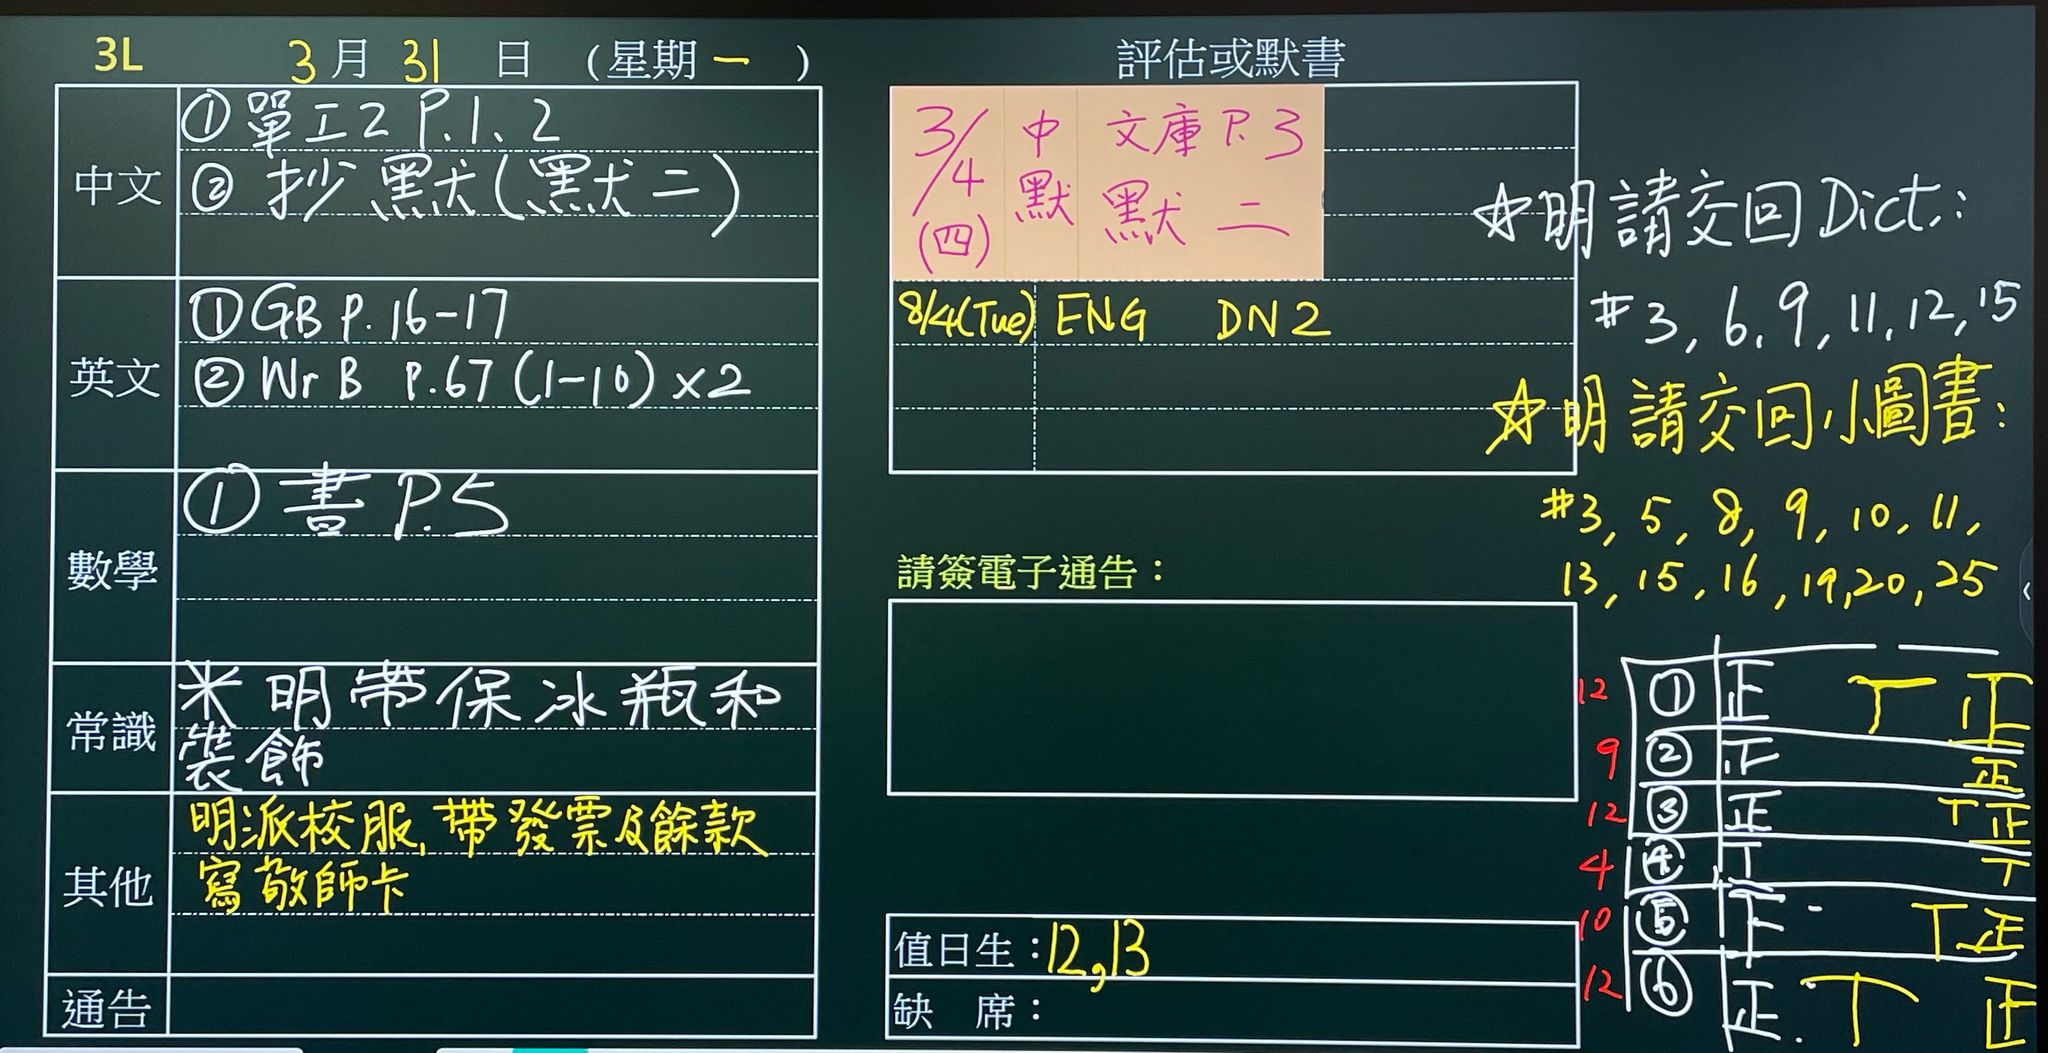 3L 3月31日 (星期一)
中文
①單工2 P.1、2
②抄默(默二)
英文
①GB P.16-17
②Wr B P.67(1-10)x2
數學
①書P.5
常識
米明帶保冰瓶和
裝飾
其他
明派校服,帶發票及餘款
寫敬師卡
通告
評估或默書
3/4(四) 中默 文庫P.3 默二
8/4(Tue) ENG DN2
請簽電子通告:
值日生:12,13
缺席:
☆明請交回Dict.:
#3, 6, 9, 11, 12, 15
☆明請交回小圖書:
#3, 5, 8, 9, 10, 11,
13, 15, 16, 19, 20, 25
12 ① 正 丅 正
9 ② 正
12 ③ 正 丅 正
4 ④ 丅 丅
10 ⑤ 丅 正
12 ⑥ 正 丅 正